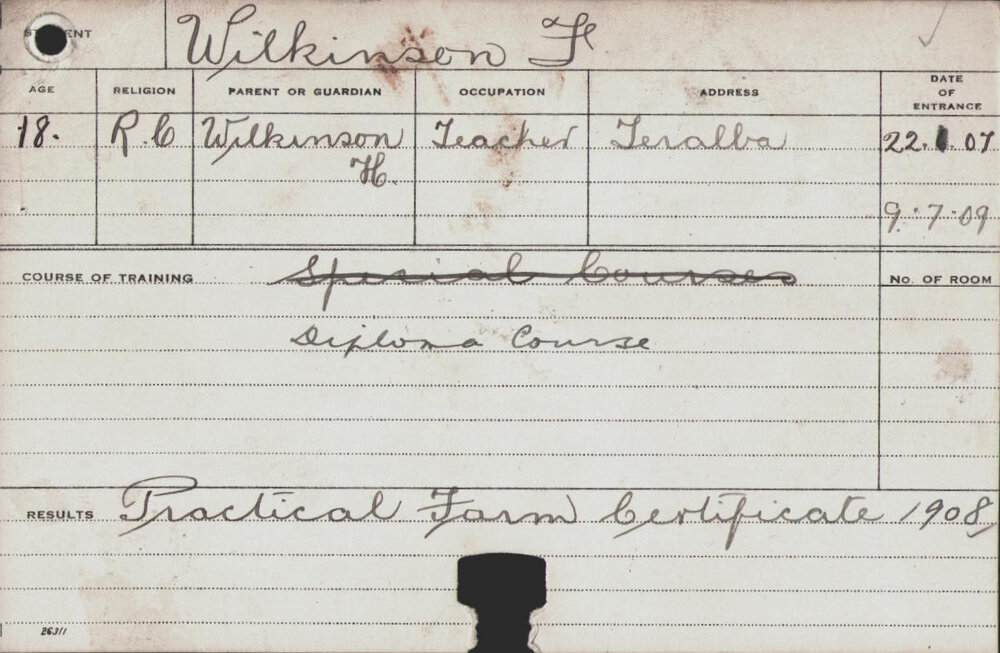 STUDENT Wilkinson F
AGE RELIGION PARENT OR GUARDIAN OCCUPATION ADDRESS DATE OF ENTRANCE
18. R.C Wilkinson Teacher Teralba 22.1.07
H.
9.7.09
COURSE OF TRAINING Special Courses No. OF ROOM
Diploma Course
RESULTS Practical Farm Certificate 1908
26311